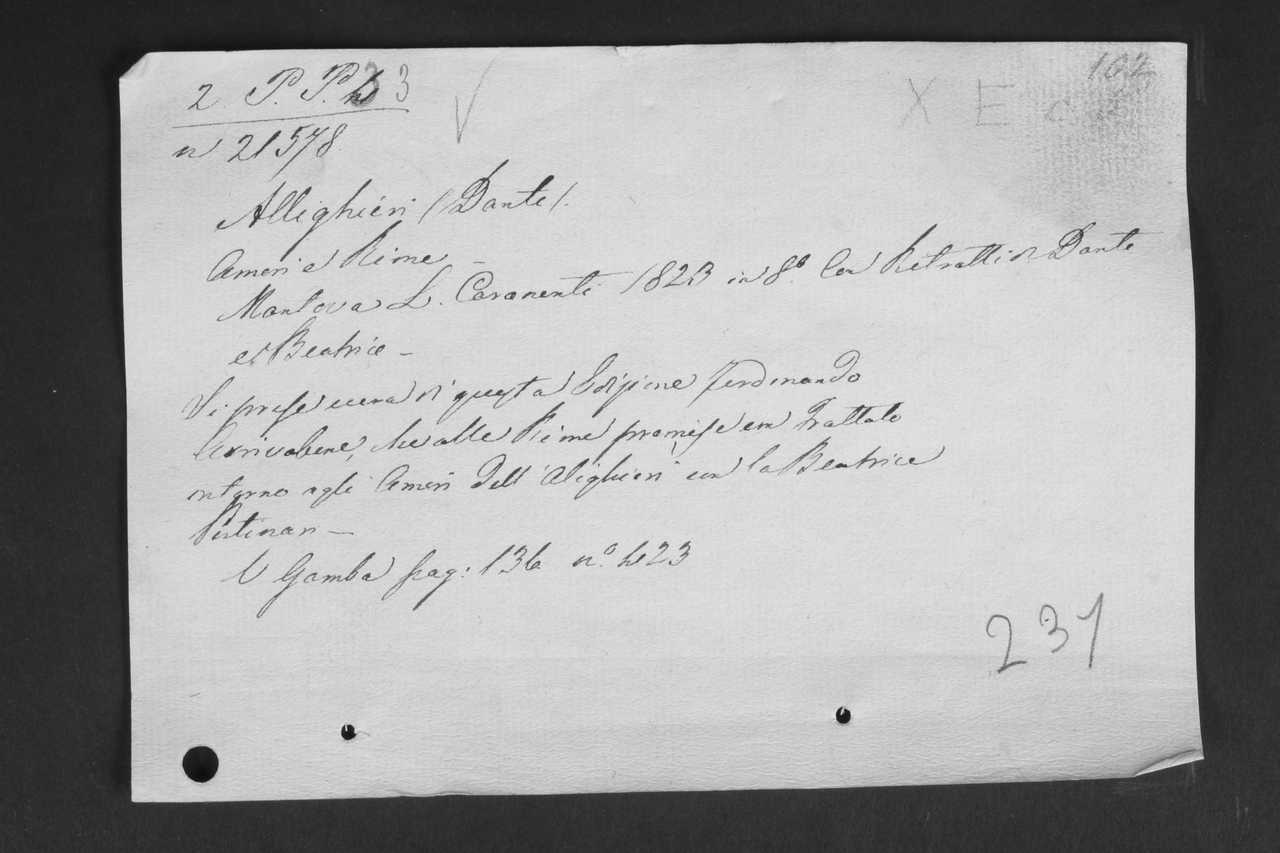 102
2. P. P. 3 3
X E
n 21578
Allighieri (Dante).
Amori e Rime —
Mantova L. Caranenti 1823 in 8.° Con Ritratti di Dante
e di Beatrice —
Si prese cura di questa Edizione Ferdinando
Arrivabene, che alle Rime premise un Trattato
intorno agli Amori dell' Alighieri con la Beatrice
Portinari —
V Gamba pag: 136 n.° 423
237